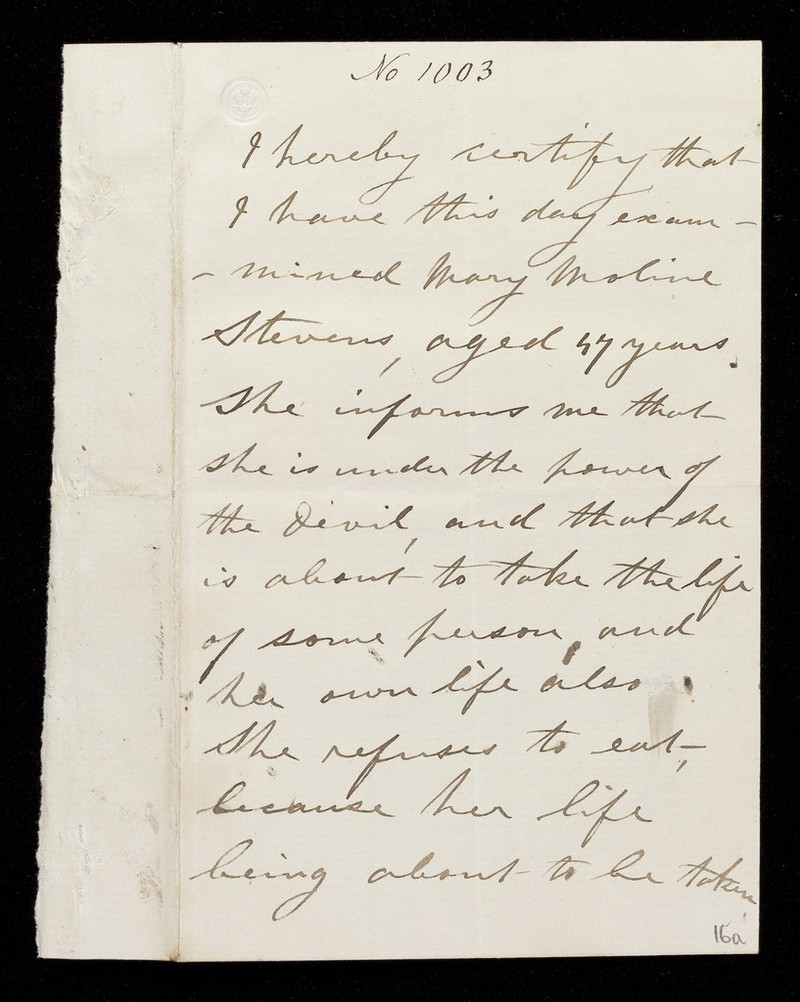 No 1003
I hereby certify that
I have this day exam-
-mined Mary Moline
Stevens, aged 47 years.
She informs me that
she is under the power of
the Devil, and that she
is about to take the life
of some person, and
her own life also.
She refuses to eat,
because her life
being about to be taken,
16a